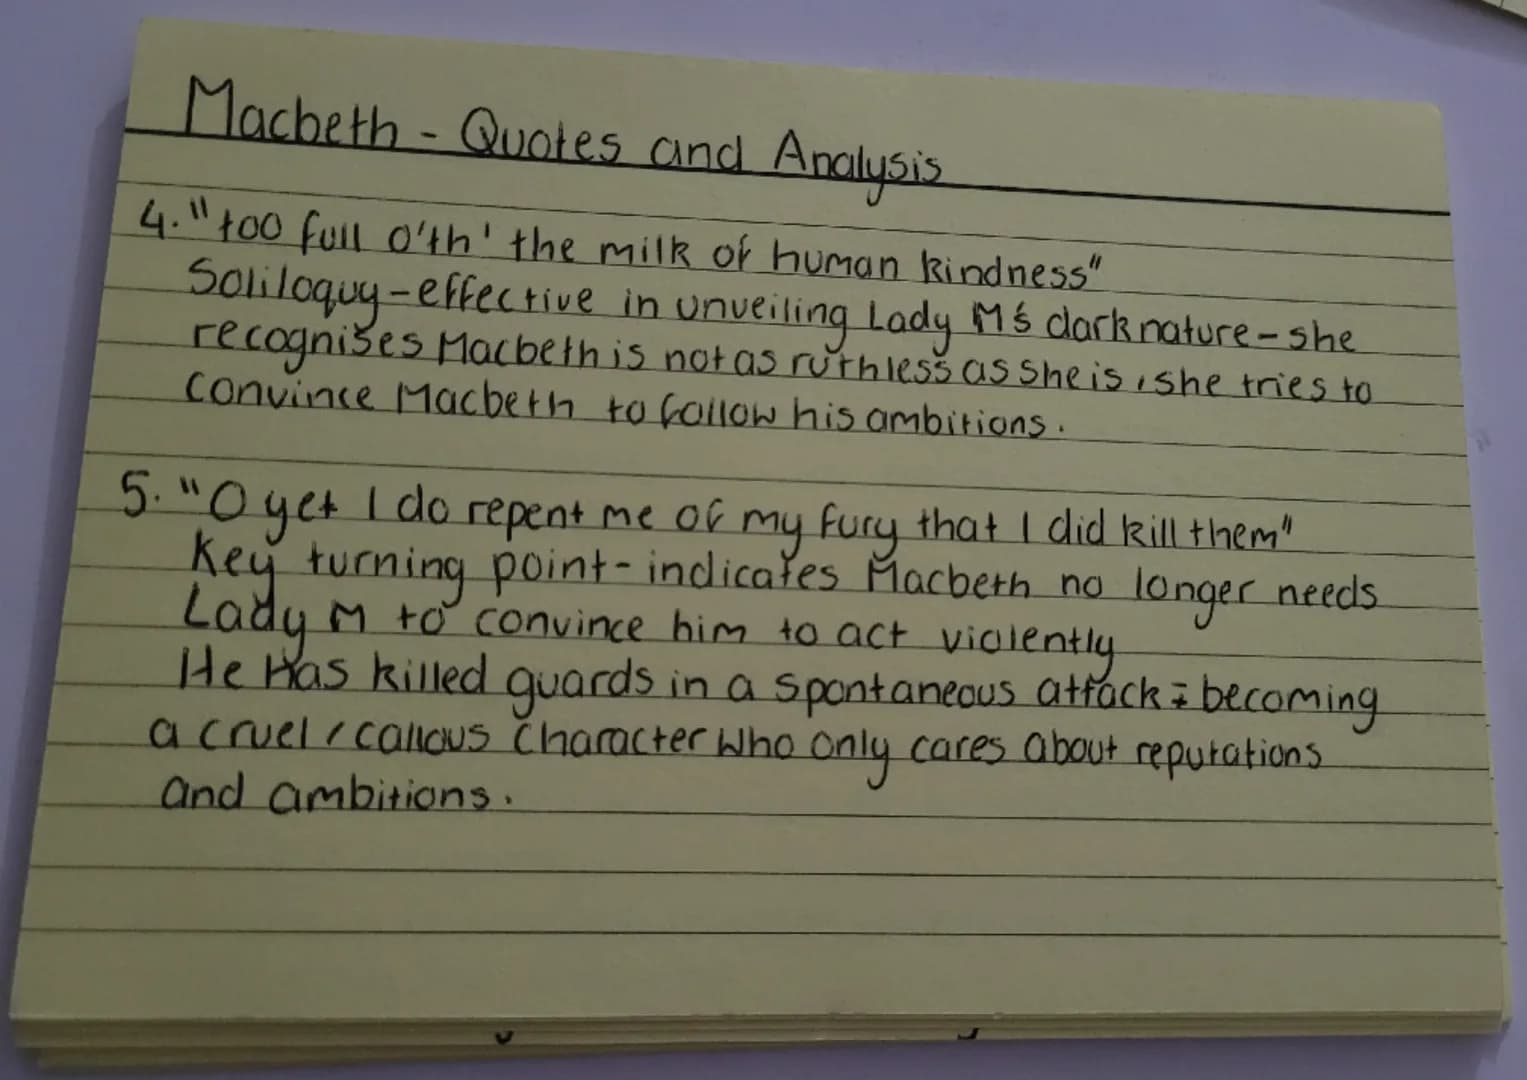 Macbeth - Quotes and Analysis
4. "too full o'th' the milk of human kindness"
Soliloquy - effective in unveiling Lady M's dark nature - she
recognises Macbeth is not as ruthless as she is, she tries to
convince Macbeth to follow his ambitions.
5. "O yet I do repent me of my fury that I did kill them"
Key turning point - indicates Macbeth no longer needs
Lady M to convince him to act violently
He Has killed guards in a spontaneous attack; becoming
a cruel, callous character who only cares about reputations
and ambitions.